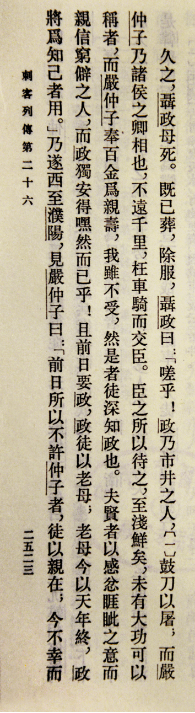 久之，聶政母死。既已葬，除服，聶政曰：「嗟乎！政乃市井之人，〔一〕鼓刀以屠；而嚴
仲子乃諸侯之卿相也，不遠千里，枉車騎而交臣。臣之所以待之，至淺鮮矣，未有大功可以
稱者，而嚴仲子奉百金爲親壽，我雖不受，然是者徒深知政也。夫賢者以感忿睚眦之意而
親信窮僻之人，而政獨安得嘿然而已乎！且前日要政，政徒以老母；老母今以天年終，政
將爲知己者用。」乃遂西至濮陽，見嚴仲子曰：「前日所以不許仲子者，徒以親在；今不幸而
刺客列傳第二十六
二五二三